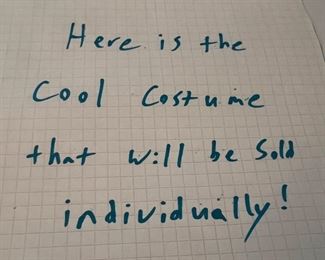 Here is the
Cool Costume
that will be Sold
individually!